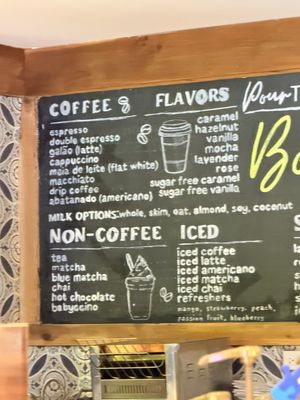 COFFEE
espresso
double espresso
galão (latte)
cappuccino
meia de leite (flat white)
macchiato
drip coffee
abatanado (americano)
FLAVORS
caramel
hazelnut
vanilla
mocha
lavender
rose
sugar free caramel
sugar free vanilla
MILK OPTIONS: whole, skim, oat, almond, soy, coconut
NON-COFFEE
tea
matcha
blue matcha
chai
hot chocolate
babyccino
ICED
iced coffee
iced latte
iced americano
iced matcha
iced chai
refreshers
mango, strawberry, peach,
passion fruit, blueberry
Pour T